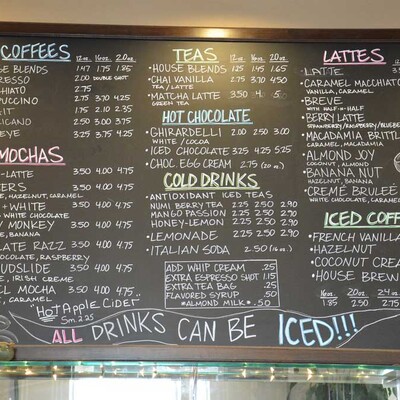 COFFEES 12 oz. 16 oz. 20 oz.
SE BLENDS 1.47 1.75 1.85
RESSO 2.00 DOUBLE SHOT
HIATO 2.75
PUCCINO 2.75 3.70 4.25
IT 1.75 2.10 2.35
ICANO 2.50 3.00
EYE 3.25 3.75 4.25
MOCHAS
3.50 4.00 4.75
ERS 3.50 4.00 4.75
E, HAZELNUT, CARAMEL
+ WHITE 3.50 4.00 4.75
+ WHITE CHOCOLATE
Y MONKEY 3.50 4.00 4.75
BANANA
LATE RAZZ 3.50 4.00 4.75
CHOCOLATE, RASPBERRY
UDSLIDE 3.50 4.00 4.75
E, IRISH CREME
EL MOCHA 3.50 4.00 4.75
E, CARAMEL
"Hot Apple Cider"
Sm 2.25
TEAS 12 oz. 16 oz. 20 oz.
HOUSE BLENDS 1.25 1.45 1.65
CHAI VANILLA 2.75 3.70 4.50
TEA / LATTE
MATCHA LATTE 3.50 4.
GREEN TEA
HOT CHOCOLATE
GHIRARDELLI 2.00 2.50 3.00
WHITE / COCOA
ICED CHOCOLATE 3.25 4.25 5.25
CHOC. EGG CREAM 2.75 (20 oz.)
COLD DRINKS
ANTIOXIDANT ICED TEAS
NUMI BERRY TEA 2.25 2.50 2.90
MANGO PASSION 2.25 2.50 2.90
HONEY-LEMON 2.25 2.50 2.90
LEMONADE 2.25 2.50 2.90
ITALIAN SODA 2.50 (16 oz.)
ADD WHIP CREAM .25
EXTRA ESPRESSO SHOT 1.15
EXTRA TEA BAG .25
FLAVORED SYRUP .50
*ALMOND MILK* .50
LATTES
LATTE 3.
CARAMEL MACCHIATO
VANILLA, CARAMEL
BREVE
WITH HALF-N-HALF
BERRY LATTE
STRAWBERRY/RASPBERRY/BLUEBE
MACADAMIA BRITTL
CARAMEL, MACADAMIA
ALMOND JOY
COCONUT, ALMOND
BANANA NUT
HAZELNUT, BANANA
CREMÉ BRULEE
WHITE CHOCOLATE, CARAMEL
ICED COFF
FRENCH VANILLA
HAZELNUT
COCONUT CREA
HOUSE BREW
16 oz. 20 oz. 24 oz.
1.85 2.35 2.
ALL DRINKS CAN BE ICED!!!